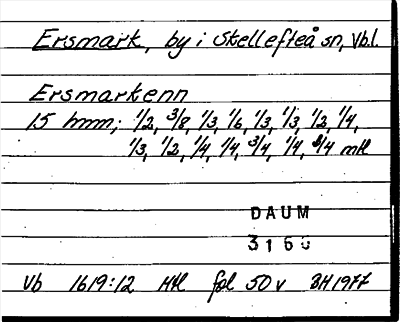 Ersmark, by i Skellefteå sn, Vb.l.
Ersmarkenn
15 hmn; 1/2, 3/8, 1/3, 1/6, 1/3, 1/3, 1/2, 1/4,
1/3, 1/2, 1/4, 1/4, 3/4, 1/4, 3/4 mtl
DAUM
3160
Vb 1619:12 Mtl fol 50v BH1977